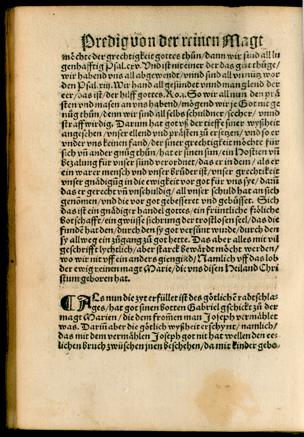 Predig von der reinen Magt
möchte der grechtigkeit gottes thůn / dann wir sind all lu
genhafftig Psal. cxv. Und ist nit einer der das gůt thüge /
wir habend uns all abgewendt / unnd sind all unnütz wor
den Psal. xiij. Wir hand all gesündet unnd manglend der
eer / das ist der hilff gottes. Ro. 3. So wir all nun den prä
sten und masen an uns habend / mögend wir je Got nit ge
nůg thůn / denn wir sind all selbs schuldner / sicher / unnd
straffwirdig. Darum hat got uß der tieffe siner wyßheit
angesehen / unser ellend und prästen zů ersetzen / und so er
under uns keinen fand / der siner grechtigkeit möchte für
sich und ander gnůg thůn / hat er sinen sun / ein Host un
bezalung für unser sünd verordnet / das er in dem / als er
ein warer mensch und unser brůder ist / unser grechtikeit
unnd gnädigung in die ewigkeit vor got für uns sye / dann
das er gerecht und unschuldig / all unser schuld hat an sich
genomen / und die vor got gebesseret und gebüsset. Sich
das ist ein gnädiger handel gottes / ein fründtliche frölich
botschafft / ein gwüsse sicherung der trostlosen / das die
fundē hat den / durch den sy got versünt wurde / durch den
sy all weg ein zůgang zů got hette. Das aber alles mit vil
geschrifft lychtlich / aber starck bewärdt möcht werden /
wo wir nit uff ein anders giengind / Namlich uff das lob
der ewig reinen magt Marie / die uns disen Heiland Chri
stum geboren hat.
ALs nun die zyt erfüllet ist des götlichen radtschla
ges / hat got sinen botten Gabriel geschickt zů der
magt Marien / die dem frommen man Joseph vermählet
was. Darum aber die götlich wyßheit erschynt / namlich /
das mit dem vermählen Joseph got nit hat wellen den ee
lichen bruch zwüschen jnen beschehen / da mit kinder gebo-